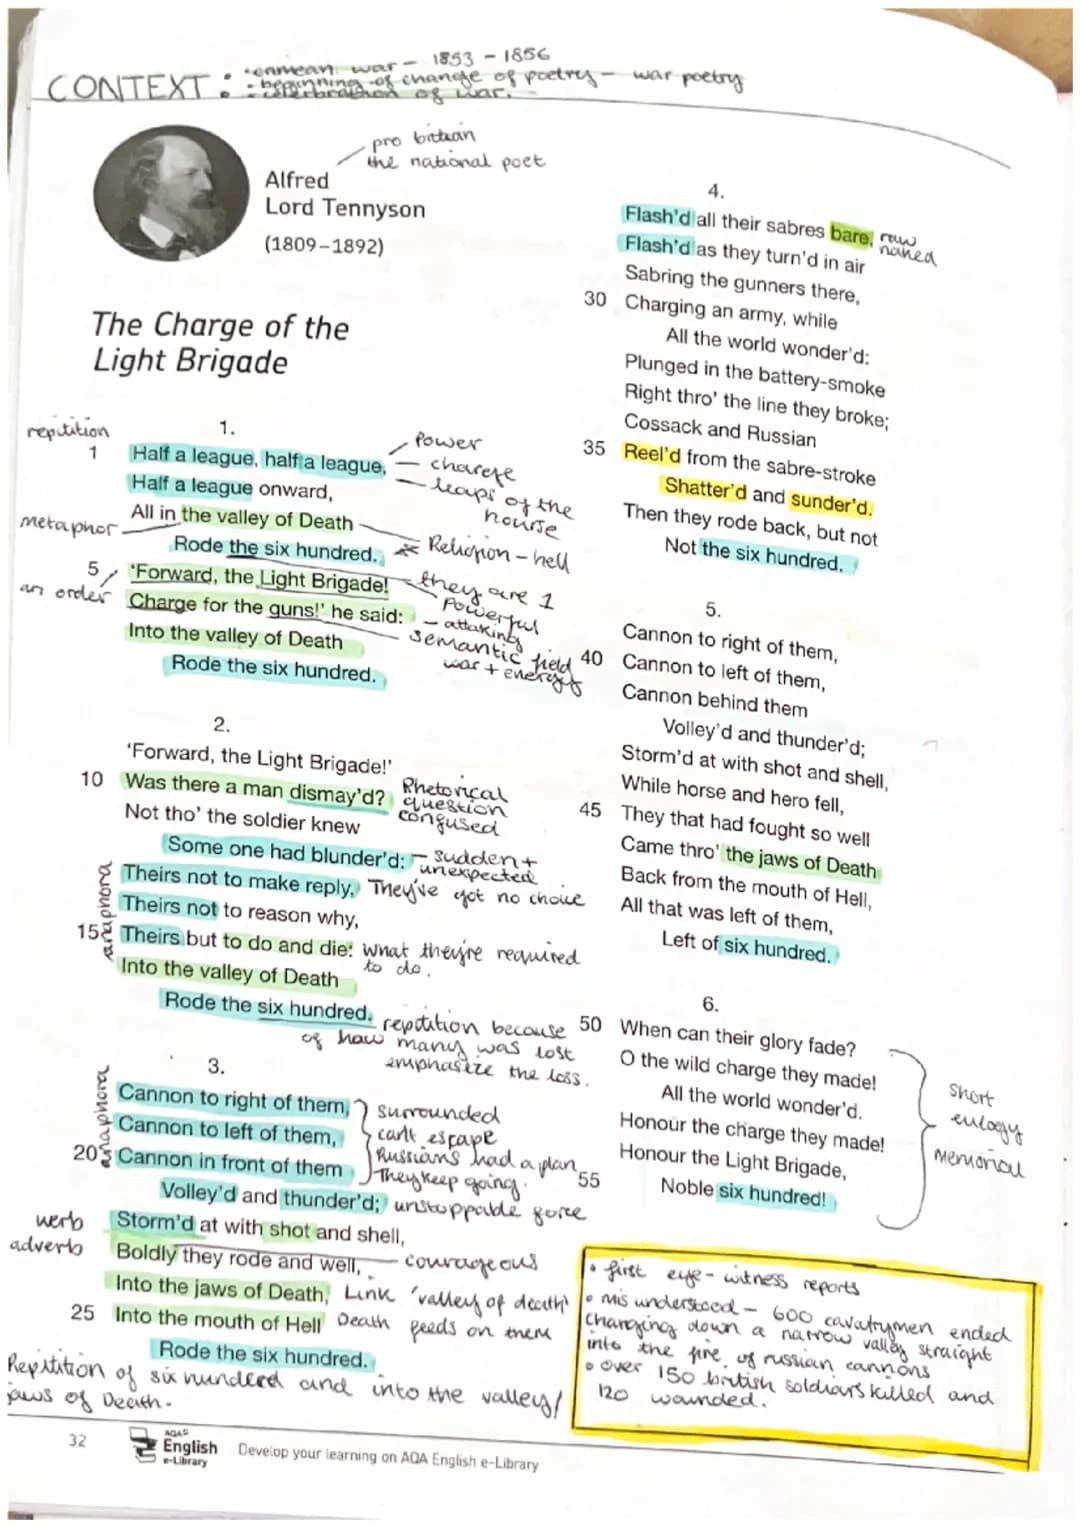 CONTEXT : • crimean war - 1853 - 1856
• beginning of change of poetry - war poetry
• celerbration of war.
pro bittian
the national poet
Alfred
Lord Tennyson
(1809–1892)
The Charge of the
Light Brigade
repitition
1.
1 Half a league, half a league,
Half a league onward,
All in the valley of Death
Rode the six hundred.
5 'Forward, the Light Brigade!
Charge for the guns!' he said:
Into the valley of Death
Rode the six hundred.
metaphor
an order
Power
charege
leaps of the
hourse
Religion - hell
they are 1
Powerful
- attaking
semantic field
war + energy
2.
'Forward, the Light Brigade!'
10 Was there a man dismay'd?
Not tho' the soldier knew
Some one had blunder'd:
Theirs not to make reply,
Theirs not to reason why,
15 Theirs but to do and die:
Into the valley of Death
Rode the six hundred.
Rhetorical
question
confused
sudden +
unexpected
They've got no choice
anaphora
what they're required
to do.
repitition because
of how many was lost
emphasize the loss.
3.
Cannon to right of them,
Cannon to left of them,
20 Cannon in front of them
Volley'd and thunder'd;
Storm'd at with shot and shell,
Boldly they rode and well,
Into the jaws of Death,
25 Into the mouth of Hell
Rode the six hundred.
anaphora
surrounded
can't escape
Russians had a plan
They keep going.
unstoppable force
verb
adverb
courageous
Link 'valley of death'
Death feeds on them
Repitition of six hunderd and into the valley/
jaws of Death.
32
AQA
English
e-Library
Develop your learning on AQA English e-Library
4.
Flash'd all their sabres bare,
Flash'd as they turn'd in air
Sabring the gunners there,
30 Charging an army, while
All the world wonder'd:
Plunged in the battery-smoke
Right thro' the line they broke;
Cossack and Russian
35 Reel'd from the sabre-stroke
Shatter'd and sunder'd.
Then they rode back, but not
Not the six hundred.
raw
naked
5.
Cannon to right of them,
40 Cannon to left of them,
Cannon behind them
Volley'd and thunder'd;
Storm'd at with shot and shell,
While horse and hero fell,
45 They that had fought so well
Came thro' the jaws of Death
Back from the mouth of Hell,
All that was left of them,
Left of six hundred.
6.
50 When can their glory fade?
O the wild charge they made!
All the world wonder'd.
Honour the charge they made!
Honour the Light Brigade,
55 Noble six hundred!
short
eulogy
Memorial
• first eye-witness reports
• misunderstood - 600 cavalrymen ended
charging down a narrow valley straight
into the fire of russian cannons
• over 150 british soldiars killed and
120 wounded.